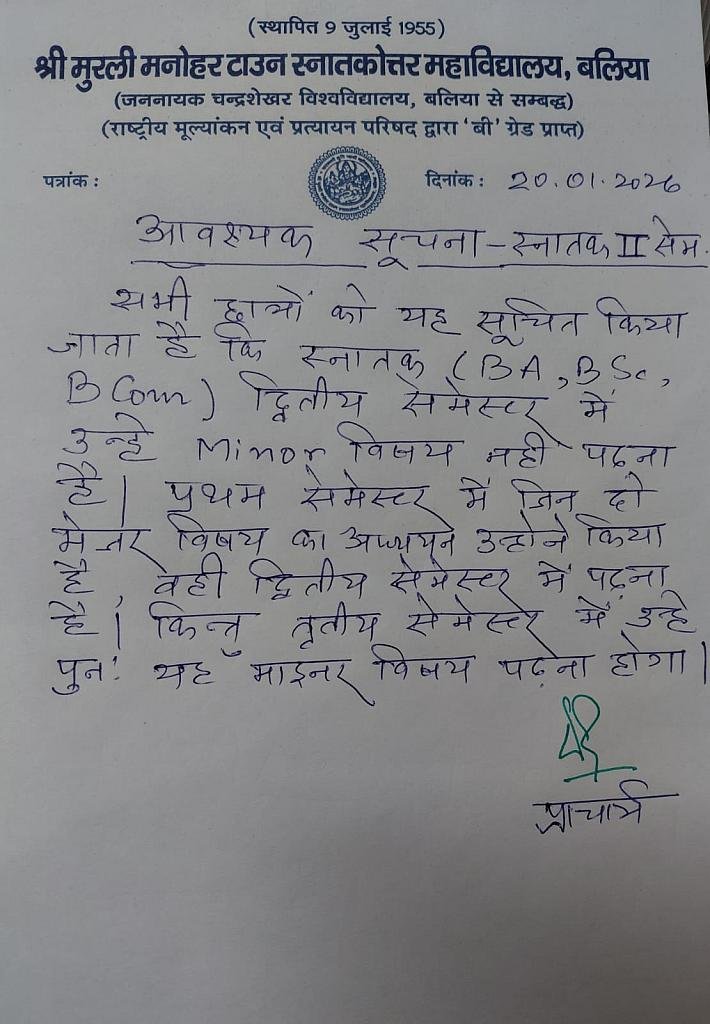 (स्थापित 9 जुलाई 1955)
श्री मुरली मनोहर टाउन स्नातकोत्तर महाविद्यालय, बलिया
(जननायक चन्द्रशेखर विश्वविद्यालय, बलिया से सम्बद्ध)
(राष्ट्रीय मूल्यांकन एवं प्रत्यायन परिषद द्वारा 'बी' ग्रेड प्राप्त)
पत्रांक : दिनांक : 20.01.2026
आवश्यक सूचना - स्नातक II सेम.
सभी छात्रों को यह सूचित किया
जाता है कि स्नातक (BA, BSc,
BCom) द्वितीय सेमेस्टर में
उन्हे Minor विषय नही पढ़ना
है। प्रथम सेमेस्टर में जिन दो
मेजर विषय का अध्ययन उन्होने किया
है, वही द्वितीय सेमेस्टर में पढ़ना
है। किन्तु तृतीय सेमेस्टर में उन्हे
पुनः यह माइनर विषय पढ़ना होगा।
प्राचार्य